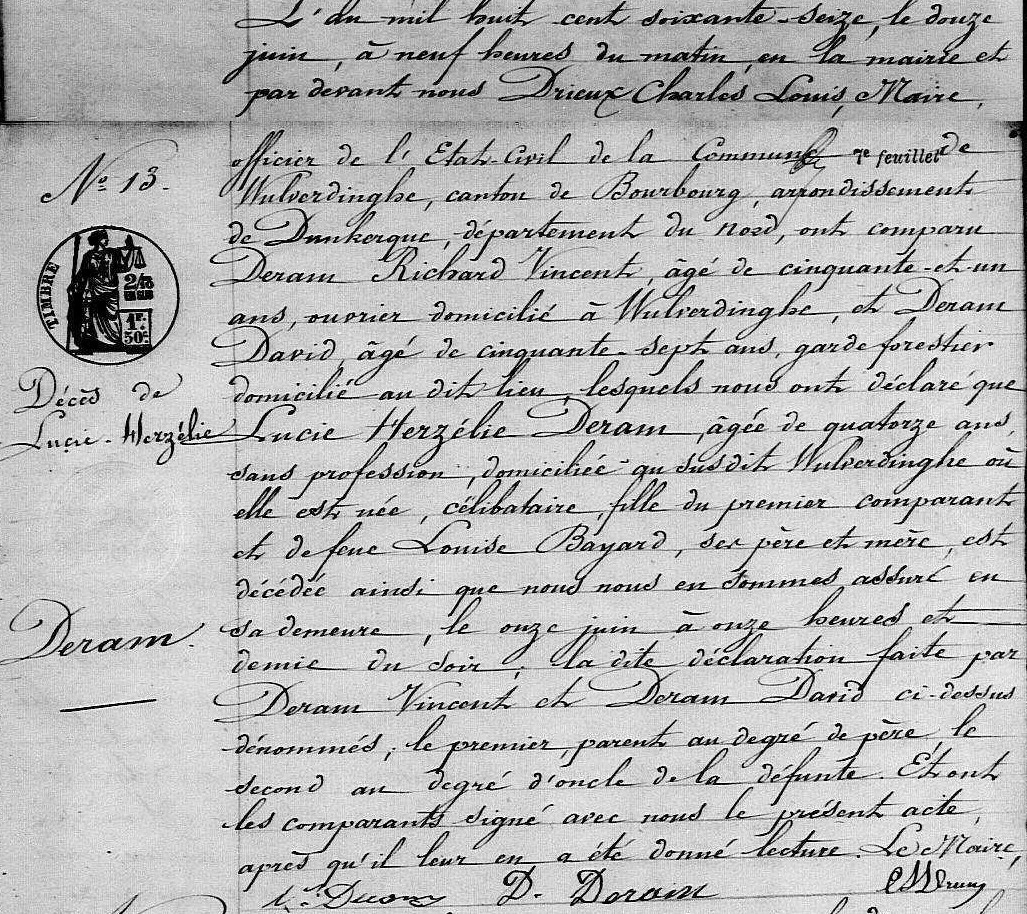 L'an mil huit cent soixante-seize, le douze
juin, à neuf heures du matin, en la mairie et
par devant nous Drieux Charles Louis, Maire,
officier de l'Etat-Civil de la Commune 7e feuillet de
N° 13.
Wulverdinghe, canton de Bourbourg, arrondissement
de Dunkerque, département du Nord, ont comparu
Deram Richard Vincent, âgé de cinquante-et-un
TIMBRE
2/10
EN SUS
1F.
50c.
ans, ouvrier domicilié à Wulverdinghe, et Deram
David, âgé de cinquante-sept ans, garde forestier
Décès de
domicilié au dit lieu, lesquels nous ont déclaré que
Lucie-Herzélie
Lucie Herzélie Deram, âgée de quatorze ans,
sans profession, domiciliée au susdit Wulverdinghe où
elle est née, célibataire, fille du premier comparant
et de feue Louise Bayard, ses père et mère, est
décédée ainsi que nous nous en sommes assuré en
Deram.
sa demeure, le onze juin à onze heures et
demie du soir; la dite déclaration faite par
Deram Vincent et Deram David ci-dessus
dénommés, le premier, parent au degré de père le
second au degré d'oncle de la défunte. Et ont
les comparants signé avec nous le présent acte,
après qu'il leur en a été donné lecture. Le Maire,
D. Deram